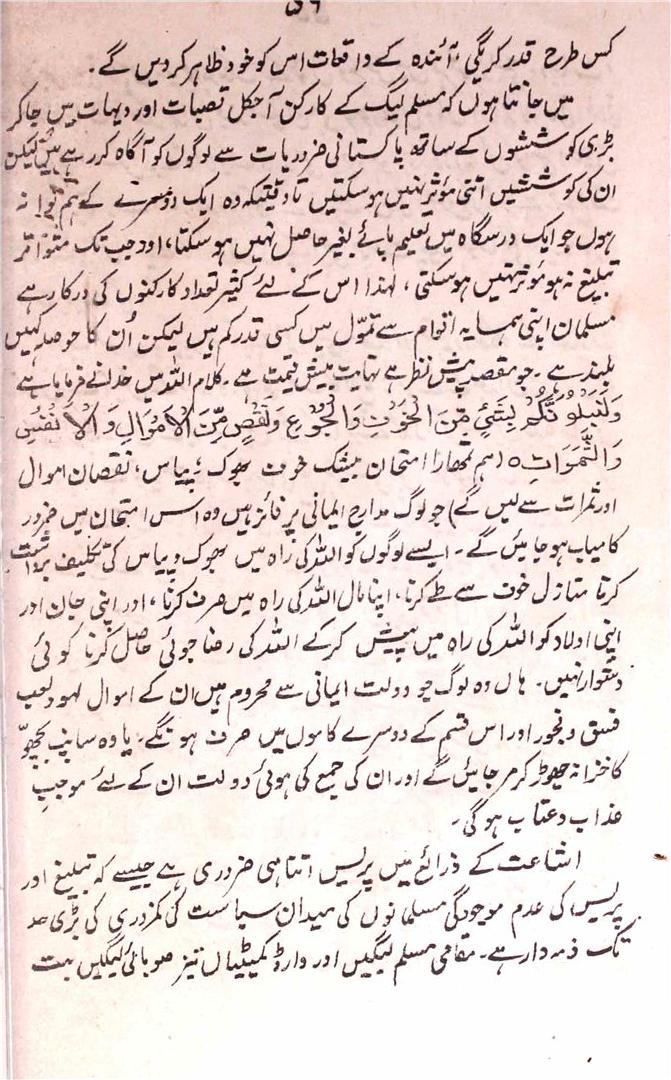 ۵۶
کس طرح قدر کریگی، آئندہ کے واقعات اس کو خود ظاہر کردیں گے۔
میں جانتا ہوں کہ مسلم لیگ کے کارکن آجکل قصبات اور دیہات میں جاکر
بڑی کوششوں کے ساتھ پاکستانی ضروریات سے لوگوں کو آگاہ کررہے ہیں لیکن
ان کی کوششیں اتنی مؤثر نہیں ہوسکتیں تاوقتیکہ وہ ایک دوسرے کے ہم نوا نہ
ہوں جو ایک درسگاہ میں تعلیم پائے بغیر حاصل نہیں ہوسکتا، اور جب تک متواتر
تبلیغ نہ ہو مؤثر نہیں ہوسکتی، لہذا اس کے لئے کثیر تعداد کارکنوں کی درکار ہے
مسلمان اپنی ہمسایہ اقوام سے تموّل میں کسی قدر کم ہیں لیکن اُن کا حوصلہ کہیں
بلند ہے۔ جو مقصد پیش نظر ہے نہایت بیش قیمت ہے۔ کلام اللہ میں خدا نے فرمایا ہے
وَلَنَبْلُوَنَّكُمْ بِشَيْءٍ مِّنَ الْخَوْفِ وَالْجُوْعِ وَنَقْصٍ مِّنَ الْاَمْوَالِ وَالْاَنْفُسِ
وَالثَّمَرَاتِ ہ (ہم تمھارا امتحان بیشک خوف بھوک، پیاس، نقصان اموال
اور ثمرات سے لیں گے) جو لوگ مدارج ایمانی پر فائز ہیں وہ اس امتحان میں ضرور
کامیاب ہوجائیں گے۔ ایسے لوگوں کو اللہ کی راہ میں بھوک و پیاس کی تکلیف برداشت
کرنا منازل خوف سے طے کرنا، اپنا مال اللہ کی راہ میں صرف کرنا، اور اپنی جان اور
اپنی اولاد کو اللہ کی راہ میں پیش کرکے اللہ کی رضا جوئی حاصل کرنا کوئی
دشوار نہیں۔ ہاں وہ لوگ جو دولت ایمانی سے محروم ہیں ان کے اموال لہو و لعب
فسق و فجور اور اس قسم کے دوسرے کاموں میں صرف ہونگے، یا وہ سانپ بچھوّ
کا خزانہ چھوڑ کر مرجائیں گے اور ان کی جمع کی ہوئی دولت ان کے لئے موجبِ
عذاب و عتاب ہوگی۔
اشاعت کے ذرائع میں پریس اتنا ہی ضروری ہے جیسے کہ تبلیغ اور
پریس کی عدم موجودگی مسلمانوں کی میدان سیاست کی کمزوری کی بڑی حد
تک ذمہ دار ہے۔ مقامی مسلم لیگیں اور وارڈ کمیٹیاں نیز صوبائی لیگیں بہت